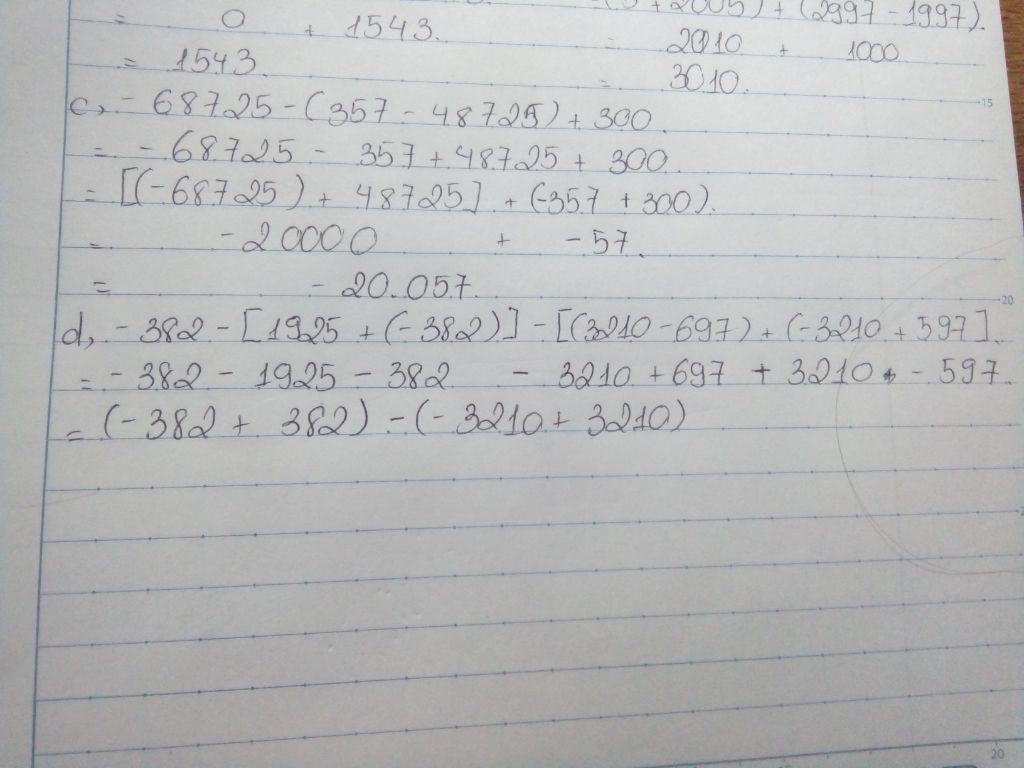 -(5 + 2005) + (2997 - 1997).
= 0 + 1543.
= 2010 + 1000
= 1543.
= 3010.
c, - 68725 - (357 - 48725) + 300.
= - 68725 - 357 + 48725 + 300.
= [(-68725) + 48725] + (-357 + 300).
= -20000 + -57.
= -20.057.
d, - 382 - [1925 + (-382)] - [(3210 - 697) + (-3210 + 597].
= - 382 - 1925 - 382 - 3210 + 697 + 3210 - 597.
= (-382 + 382) - (-3210 + 3210)
15
20
20